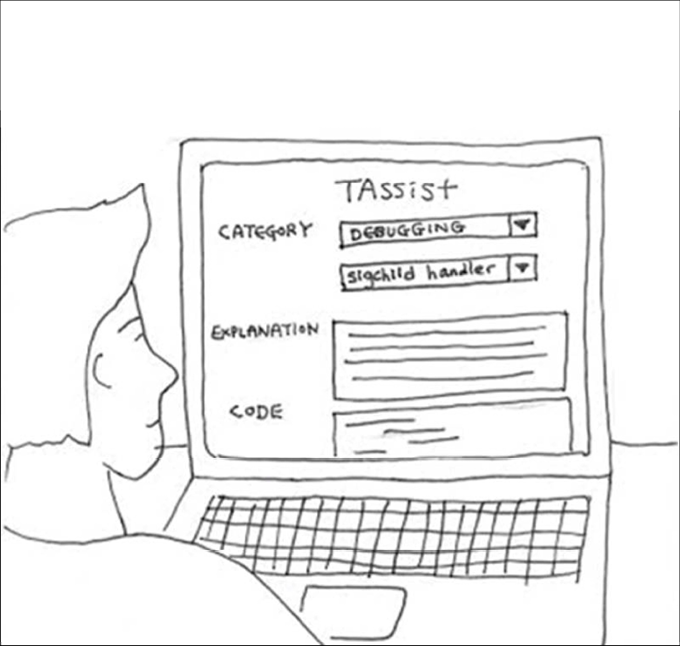 TAssist
CATEGORY DEBUGGING
sigchild handler
EXPLANATION
CODE